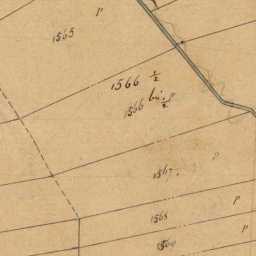 p
1565
1566 1/2
1566 1/2 p
1567. p
1568 p
p